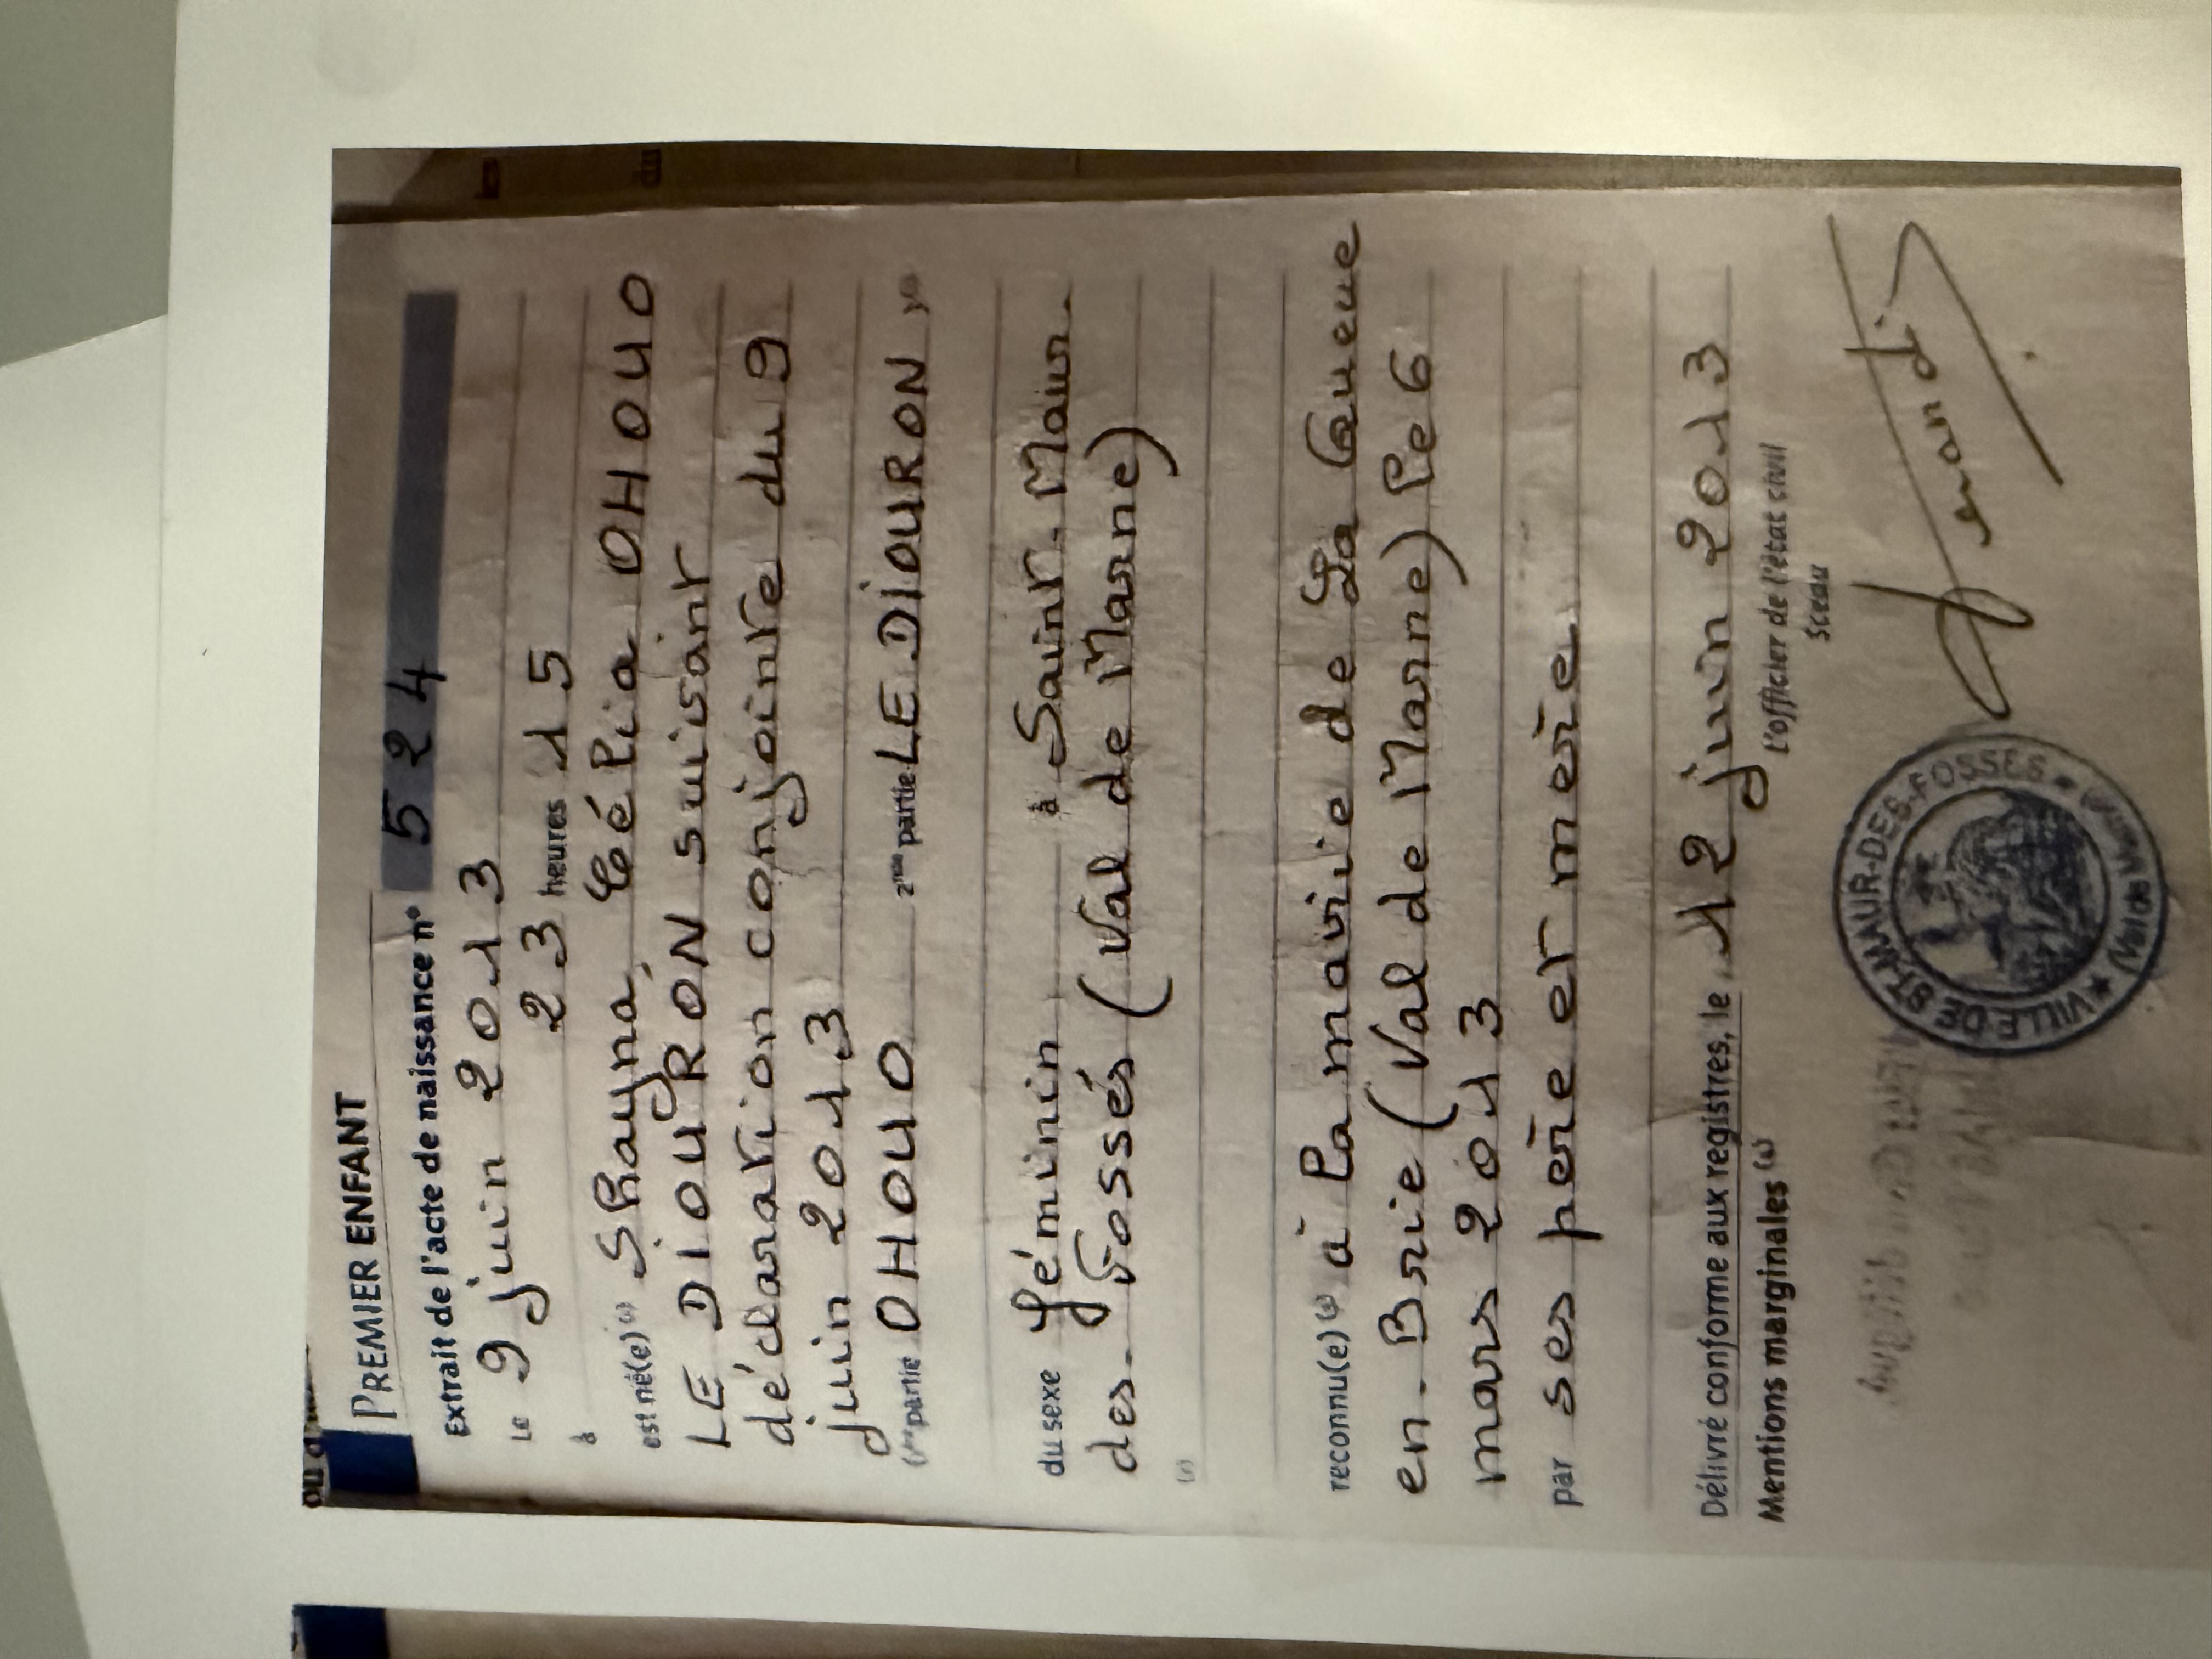 PREMIER ENFANT
Extrait de l'acte de naissance n° 524
Le 9 juin 2013
à 23 heures 15
est né(e) (1) Shayna, Célia OHOUO
LE DIOURON suivant
déclaration conjointe du 9
juin 2013
(1ère partie OHOUO 2ème partie LE DIOURON )(2)
du sexe féminin à Saint-Maur-
des-Fossés (Val de Marne)
reconnu(e) à la mairie de La Queue
en-Brie (Val de Marne) le 6
mars 2013
par ses père et mère
Délivré conforme aux registres, le 12 juin 2013
Mentions marginales
L'officier de l'état civil
Sceau
VILLE DE ST-MAUR-DES-FOSSES
(Val de Marne)
les
du